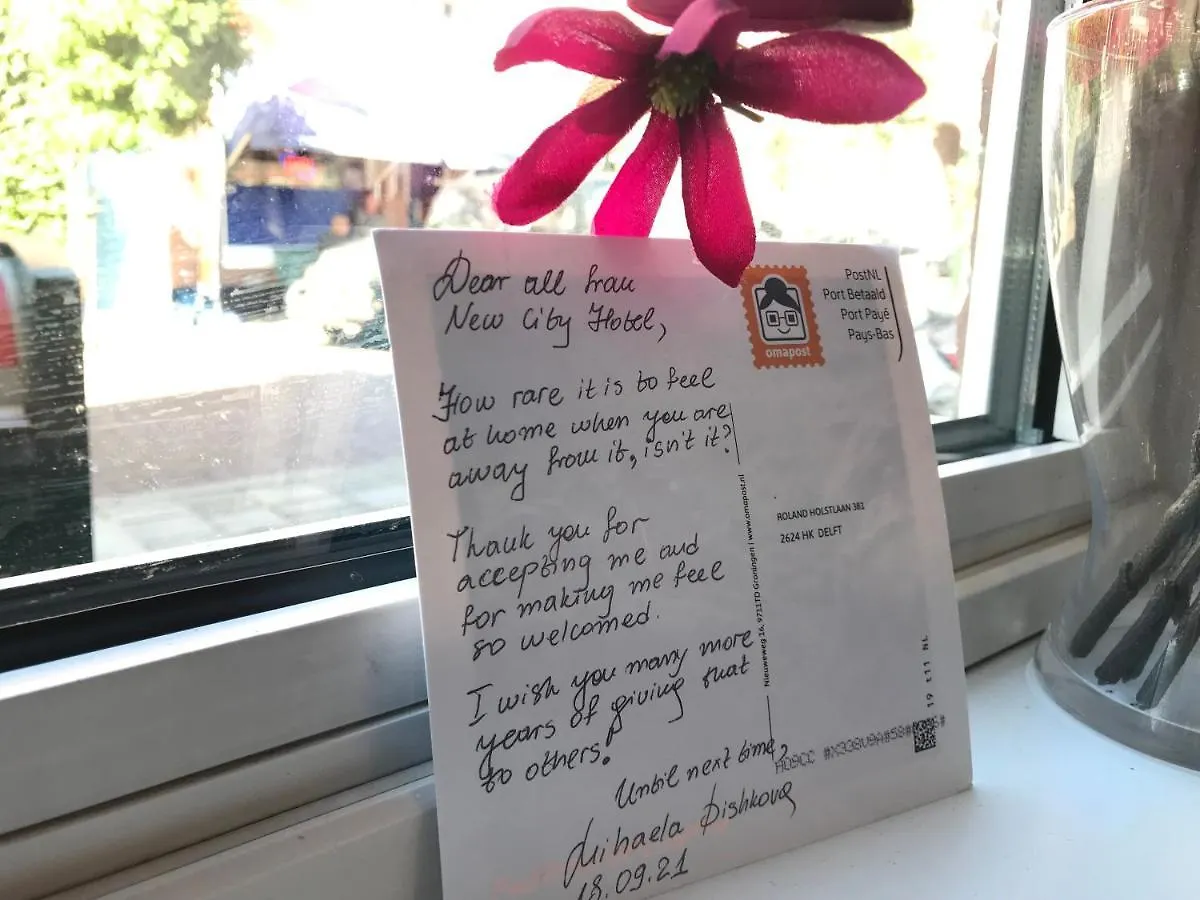 Dear all frau
New City Hotel,
How rare it is to feel
at home when you are
away from it, isn't it?
Thank you for
accepting me and
for making me feel
so welcomed.
I wish you many more
years of giving that
to others.
Until next time,
Mihaela Dishkova
18.09.21
omapost
PostNL
Port Betaald
Port Payé
Pays-Bas
Nieuweweg 16, 9711TD Groningen | www.omapost.nl
ROLAND HOLSTLAAN 381
2624 HK DELFT
19 t11 NL